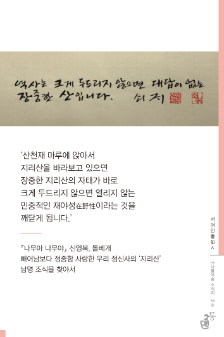 역사는 크게 두드리지 않으면 대답이 없는
장중한 산입니다. 쇠귀
'산천재 마루에 앉아서
지리산을 바라보고 있으면
장중한 지리산의 자태가 바로
크게 두드리지 않으면 열리지 않는
민중적인 재야성在野性이라는 것을
깨닫게 됩니다.'
『나무야 나무야』, 신영복, 돌베개
빼어남보다 장중함 사랑한 우리 정신사의 '지리산'
남명 조식을 찾아서